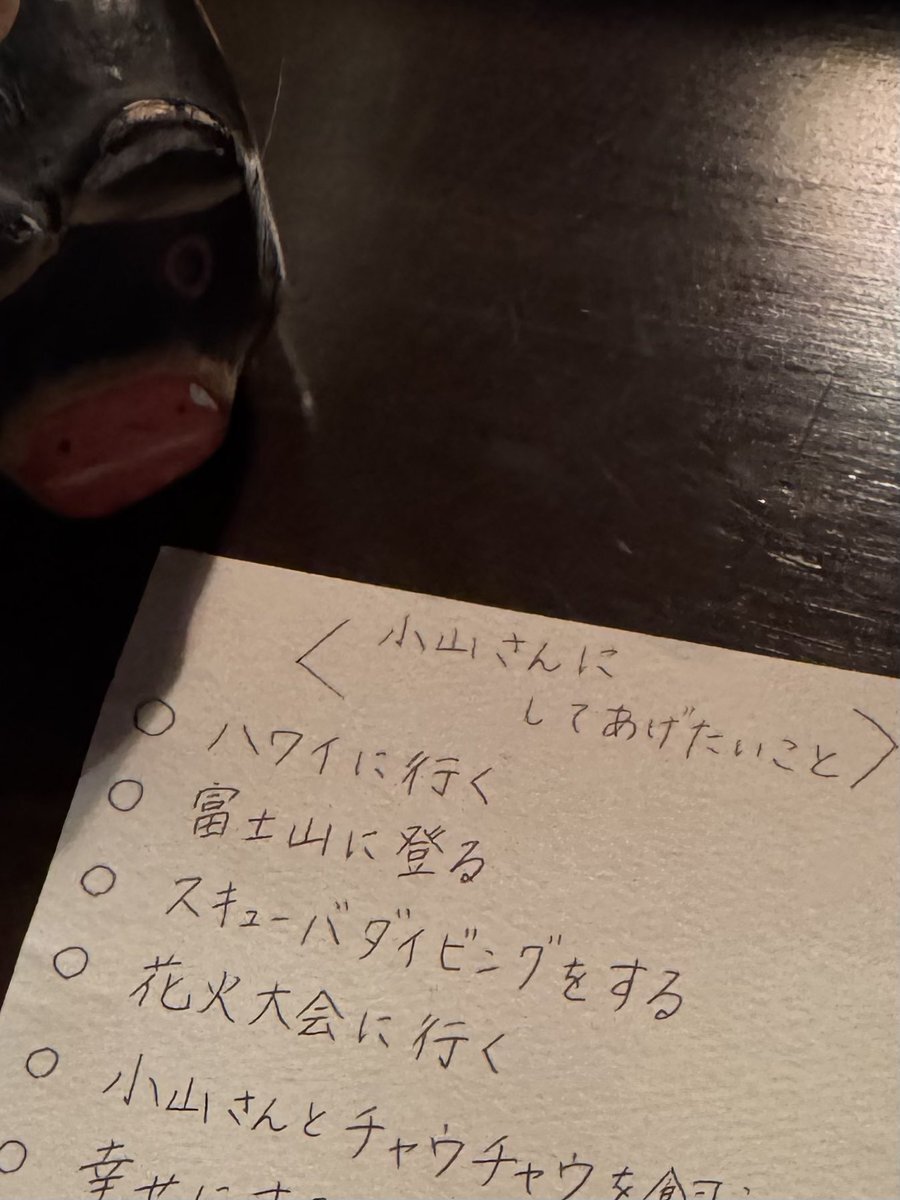 〈 小山さんに
してあげたいこと 〉
○ ハワイに行く
○ 富士山に登る
○ スキューバダイビングをする
○ 花火大会に行く
○ 小山さんとチャウチャウを飼
○ 幸せに